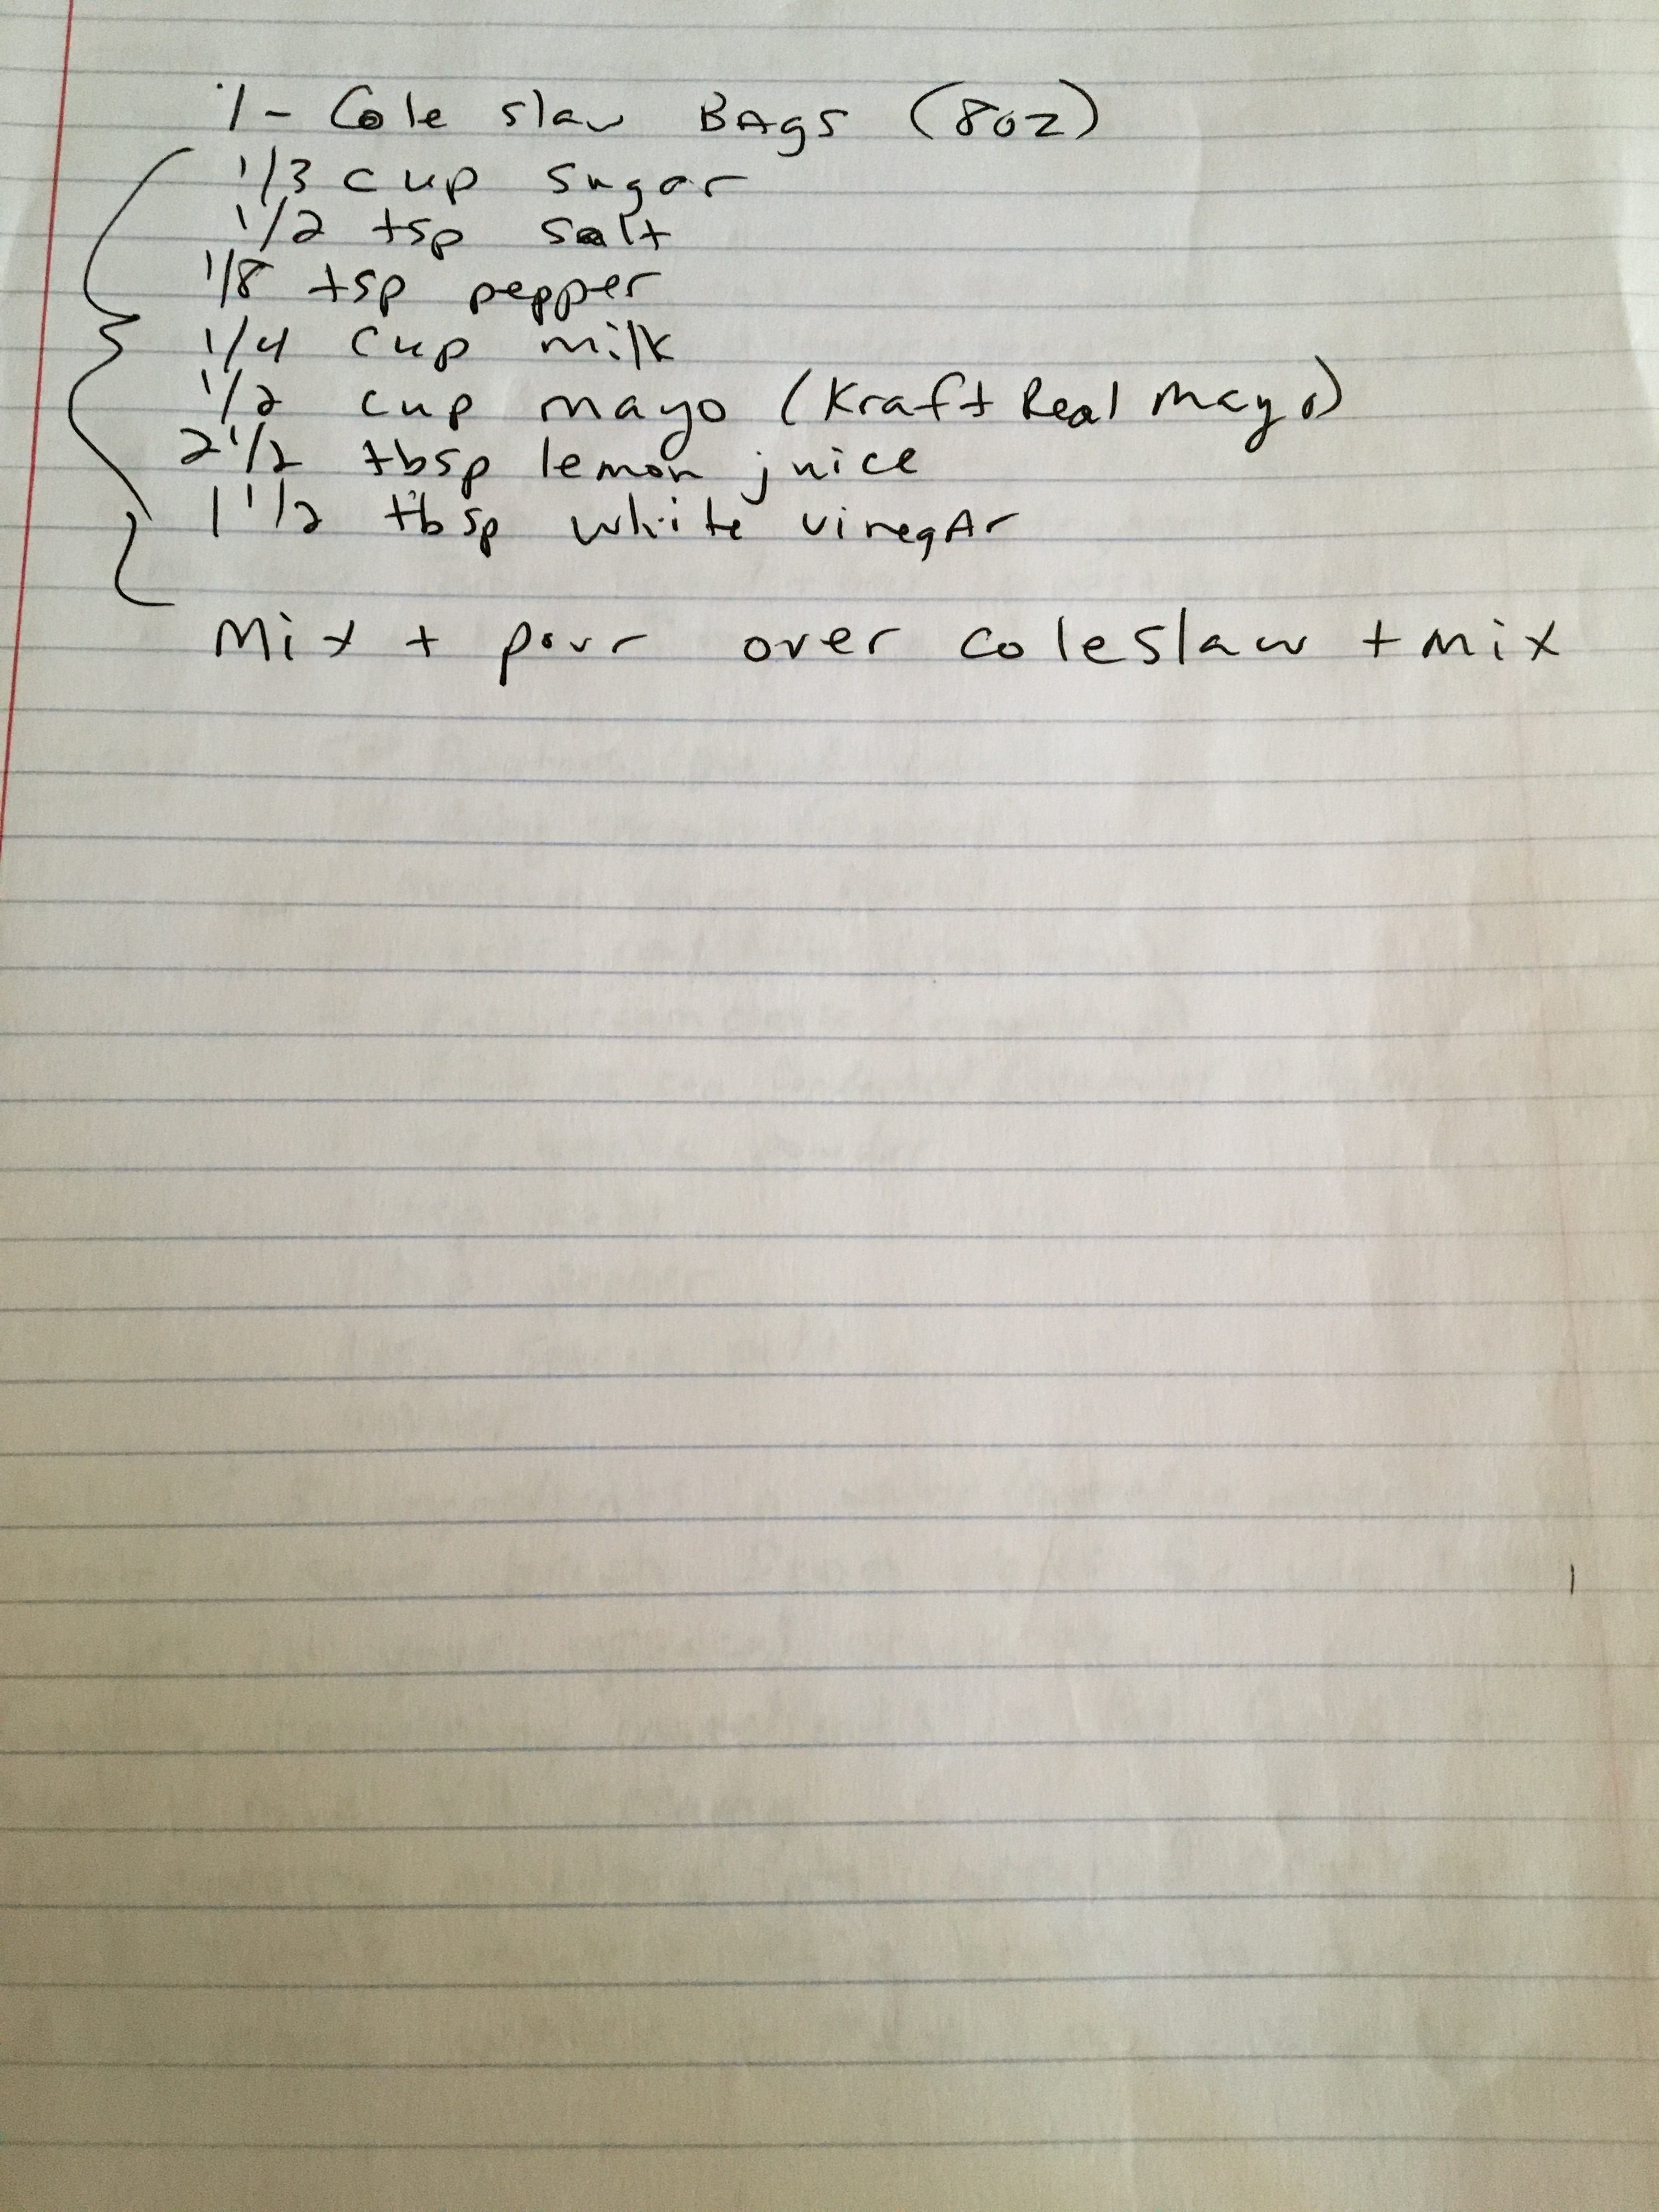 1 - Cole slaw BAgs (8oz)
1/3 cup sugar
1/2 tsp salt
1/8 tsp pepper
1/4 cup milk
1/2 cup mayo (Kraft Real Mayo)
2 1/2 tbsp lemon juice
1 1/2 tbsp white vinegAr
Mix + pour over coleslaw + mix